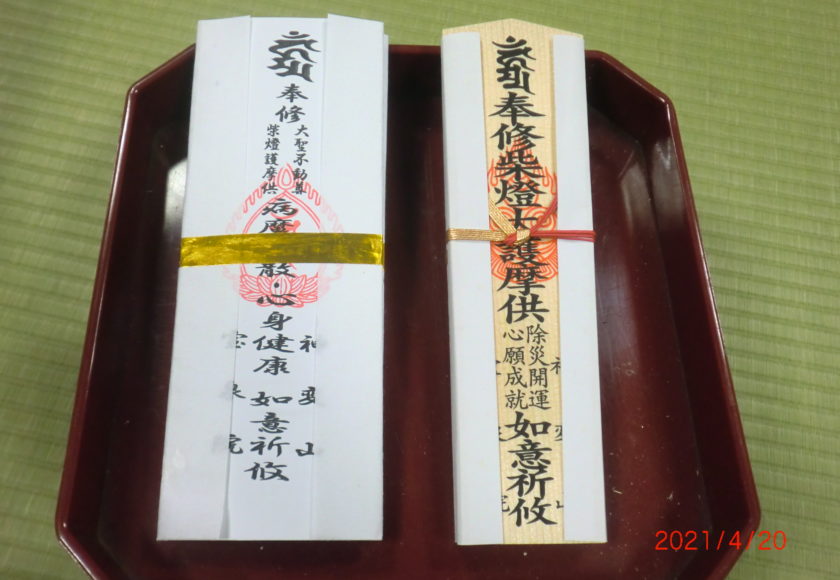 奉修
大聖不動尊
柴燈護摩供
病
散・心身健康 如意祈攸
奉修柴燈大護摩供
除災開運
心願成就
如意祈攸
2021/4/20